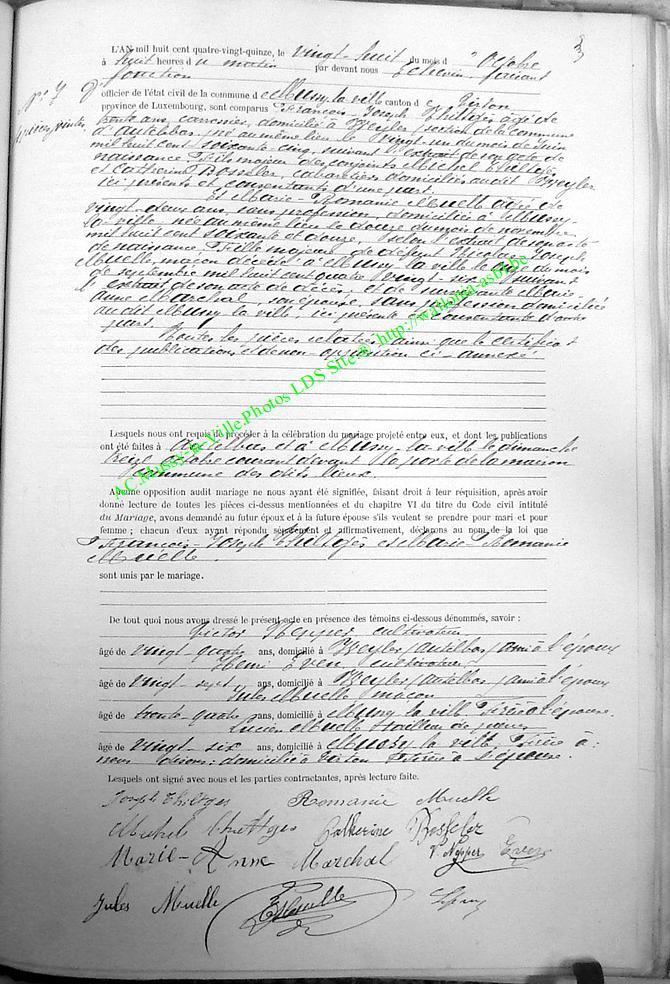 3
L'AN mil huit cent quatre-vingt-quinze, le vingt-huit du mois d'Octobre
à huit heures du matin par devant nous Echevin faisant
fonction
officier de l'état civil de la commune de Mussy-la-ville canton de Virton
province de Luxembourg, sont comparus François-Joseph Thiltgès âgé de
trente ans, domicilié à Weyler, section de la commune
d'Autelbas, né au même lieu le vingt-un du mois de Juin
mil huit cent soixante-cinq, suivant l'extrait de son acte de
naissance, Fils majeur des conjoints Michel Thiltgès
et Catherine Bosseler, cabaretiers domiciliés audit Weyler
ici présents et consentants d'une part.
Et Marie-Romanie Muelle âgée de
vingt-deux ans, sans profession, domiciliée à Mussy-
la-ville née au même lieu le douze du mois de novembre
mil huit cent soixante et douze, selon extrait de son acte
de naissance, Fille majeure de défunt Nicolas Joseph
Muelle, maçon décédé à Mussy-la-ville le du mois
de septembre mil huit cent quatre-vingt-six suivant
l'extrait de son acte de décès et de survivante Marie-
Anne Marchal son épouse, sans profession domiciliée
audit Mussy-la-ville ici présente et consentante d'autre
part.
Toutes les pièces relatées ainsi que le certificat
des publications et de non opposition ci-annexé
AC.Mussy-la-Ville.Photos LDS Site® http://wallonia-asbl.be
Lesquels nous ont requis de procéder à la célébration du mariage projeté entre eux, et dont les publications
ont été faites à Autelbas et à Mussy-la-ville le dimanche
treize octobre courant devant la porte de la maison
commune des dits lieux.
Aucune opposition audit mariage ne nous ayant été signifiée, faisant droit à leur réquisition, après avoir
donné lecture de toutes les pièces ci-dessus mentionnées et du chapitre VI du titre du Code civil intitulé
du Mariage, avons demandé au futur époux et à la future épouse s'ils veulent se prendre pour mari et pour
femme; chacun d'eux ayant répondu séparément et affirmativement, déclarons au nom de la loi que
François-Joseph Thiltgès et Marie-Romanie
Muelle.
sont unis par le mariage.
De tout quoi nous avons dressé le présent acte en présence des témoins ci-dessous dénommés, savoir :
Victor Nepper cultivateur
âgé de vingt-quatre ans, domicilié à Weyler/Autelbas/ami à l'époux
Henri Even, cultivateur
âgé de vingt-sept ans, domicilié à Weyler/Autelbas/ami à l'époux
Jules Muelle maçon
âgé de trente-quatre ans, domicilié à Mussy-la-ville Frère à l'épouse.
Lucien Muelle tailleur de pierres
âgé de vingt-six ans, domicilié à Mussy-la-ville, Frère à :
nous disons: domicilié à Virton Frère à l'épouse.
Lesquels ont signé avec nous et les parties contractantes, après lecture faite.
Joseph Thiltges Romanie Muelle
Michel Thiltges Catherine Bosseler
Marie-Anne Marchal V. Nepper Even
Jules Muelle Muelle